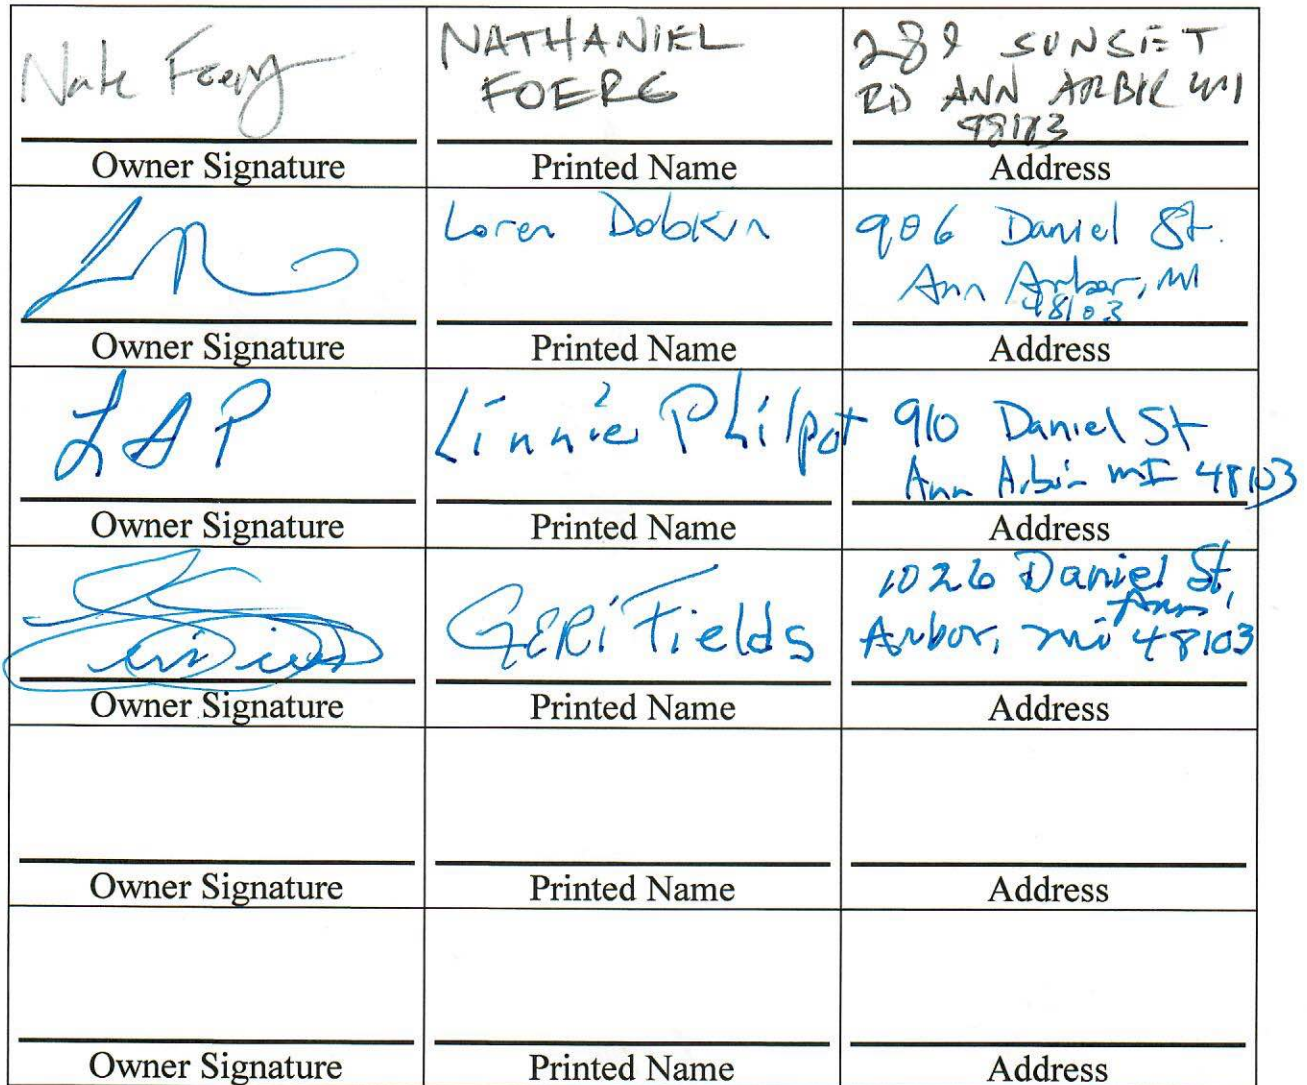 Nate Foerg
NATHANIEL
FOERG
289 SUNSET
RD ANN ARBOR MI
48103
Owner Signature
Printed Name
Address
Loren Dobkin
906 Daniel St.
Ann Arbor, MI
48103
Owner Signature
Printed Name
Address
LAP
Linnie Philpot
910 Daniel St
Ann Arbor MI 48103
Owner Signature
Printed Name
Address
GERi Fields
1026 Daniel St,
Ann
Arbor, mi 48103
Owner Signature
Printed Name
Address
Owner Signature
Printed Name
Address
Owner Signature
Printed Name
Address